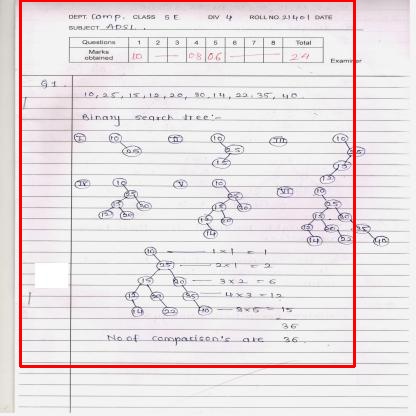 DEPT. Comp. CLASS SE DIV 4 ROLL NO. 21401 DATE
SUBJECT ADSL.
Questions 1 2 3 4 5 6 7 8 Total
Marks obtained 10 — — 08 06 — — — 24
Examiner
Q1.
10, 25, 15, 12, 20, 30, 14, 22, 35, 40.
Binary search tree:-
I 10 25
II 10 25 15
III 10 25 15 12
IV 10 25 15 30 12 20
V 10 25 15 30 12 20 14
VI 10 25 15 30 12 20 35 14 22 40
10 — 1×1 = 1
25 — 2×1 = 2
15 30 — 3×2 = 6
12 20 35 — 4×3 = 12
14 22 40 — 3×5 = 15
36
No of comparison's are 36.